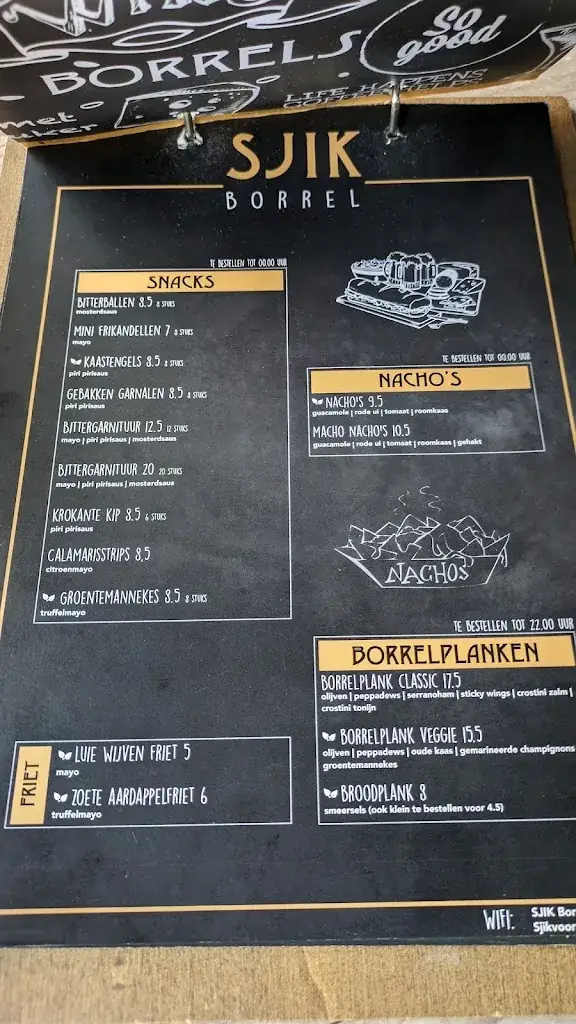 BORRELS
So
good
LIFE HAPPENS
met
SJIK
BORREL
TE BESTELLEN TOT 00.00 UUR
SNACKS
BITTERBALLEN 8.5 8 STUKS
mosterdsaus
MINI FRIKANDELLEN 7 8 STUKS
mayo
KAASTENGELS 8.5 8 STUKS
piri pirisaus
GEBAKKEN GARNALEN 8.5 8 STUKS
piri pirisaus
BITTERGARNITUUR 12.5 12 STUKS
mayo | piri pirisaus | mosterdsaus
BITTERGARNITUUR 20 20 STUKS
mayo | piri pirisaus | mosterdsaus
KROKANTE KIP 8.5 6 STUKS
piri pirisaus
CALAMARISSTRIPS 8,5
citroenmayo
GROENTEMANNEKES 8.5 8 STUKS
truffelmayo
FRIET
LUIE WIJVEN FRIET 5
mayo
ZOETE AARDAPPELFRIET 6
truffelmayo
TE BESTELLEN TOT 00.00 UUR
NACHO'S
NACHO'S 9.5
guacamole | rode ui | tomaat | roomkaas
MACHO NACHO'S 10.5
guacamole | rode ui | tomaat | roomkaas | gehakt
NACHOS
TE BESTELLEN TOT 22.00 UUR
BORRELPLANKEN
BORRELPLANK CLASSIC 17.5
olijven | peppadews | serranoham | sticky wings | crostini zalm |
crostini tonijn
BORRELPLANK VEGGIE 15.5
olijven | peppadews | oude kaas | gemarineerde champignons
groentemannekes
BROODPLANK 8
smeersels (ook klein te bestellen voor 4.5)
WIFI:
SJIK Bor
Sjikvoor